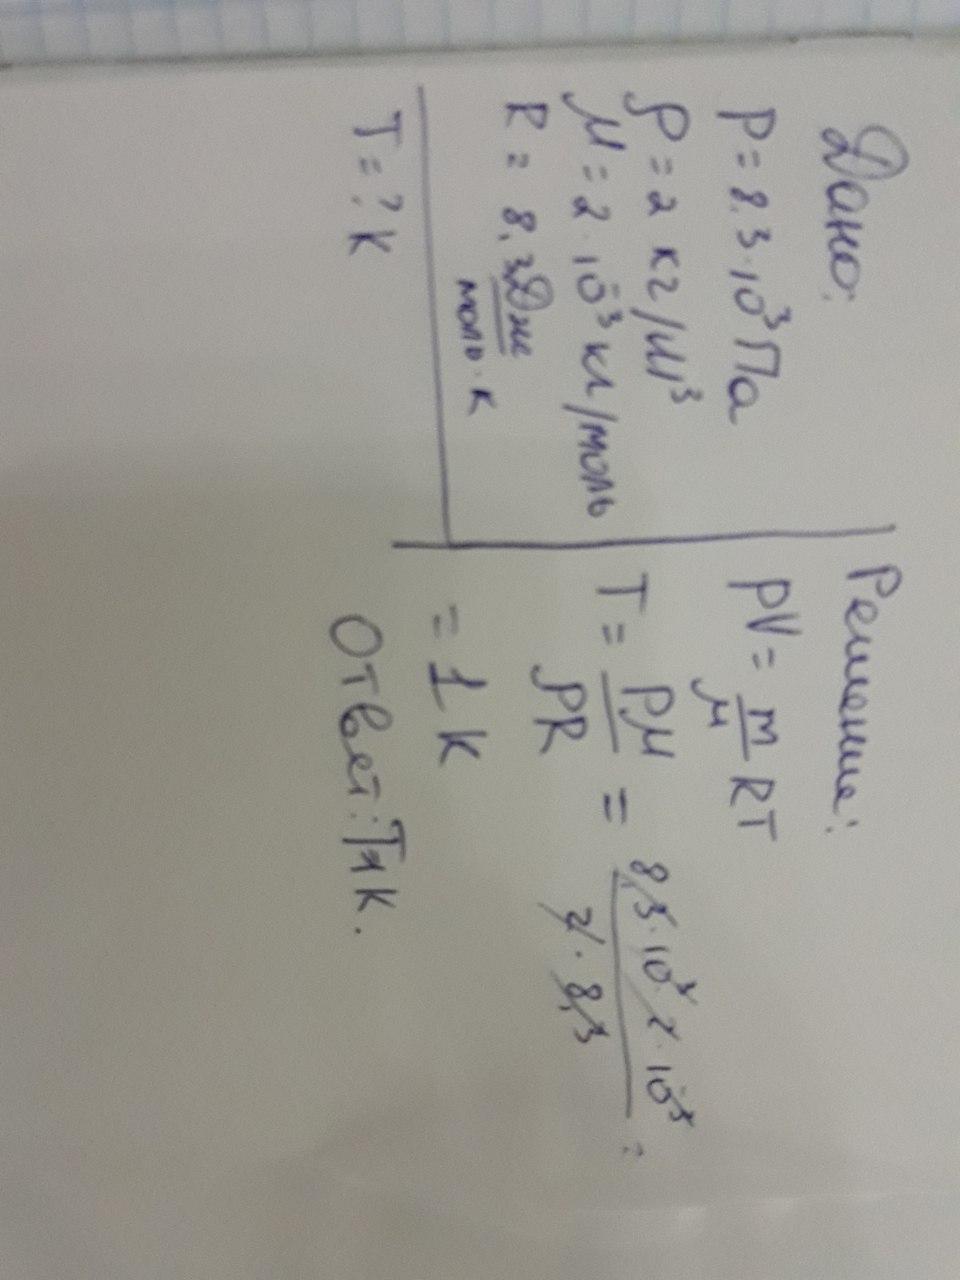 Дано:
P = 8.3·10³ Па
ρ = 2 кг/м³
μ = 2·10⁻³ кг/моль
R = 8,3 Дж
моль·К
T = ? К
Решение:
PV = m/μ RT
T = Pμ/ρR = 8,3·10³·2·10⁻³/2·8,3 =
= 1 К
Ответ: T1К.